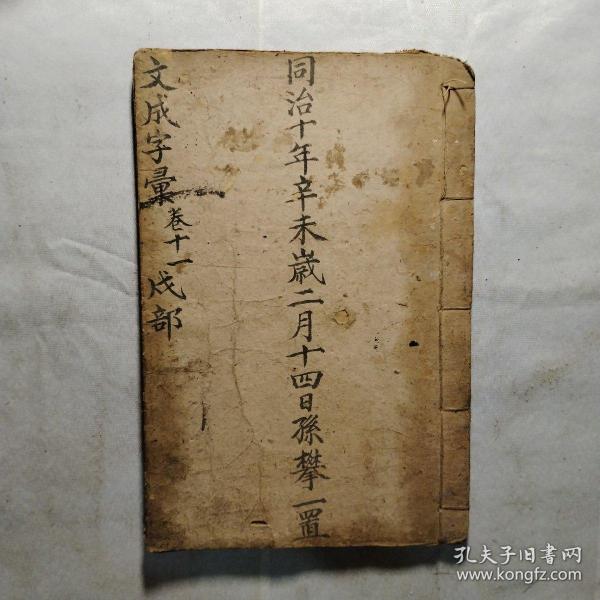 同治十年辛未歲二月十四日孫攀一置
文成字彙 卷十一 戌部
孔夫子旧书网
www.kongfz.com